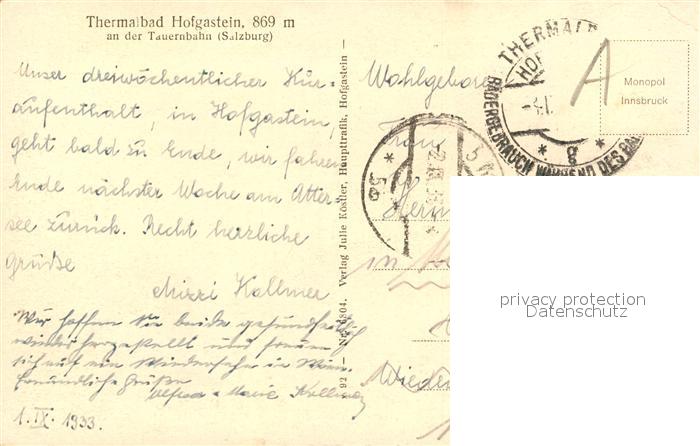 Thermalbad Hofgastein, 869 m
an der Tauernbahn (Salzburg)
Unser dreiwöchentlicher Kur-
aufenthalt, in Hofgastein,
geht bald zu Ende, wir fahren
Ende nächster Woche am Atter-
see zurück. Recht herzliche
Grüße
Mizzi Kallmer
Wir hoffen Sie beide gesundheitlich
wiederhergestellt und freuen
sich auf ein Wiedersehn in Wien
Freundliche Grüße
Alfred u Marie Kallmer
1. IX. 1933.
92 – Nr. 6804. Verlag Julie Köstler, Haupttrafik, Hofgastein –
Wohlgeboren
Frau
in
Wieden
THERMALB
HOF
BÄDERGEBRAUCH WÄHREND DES GA
* 8 *
A
Monopol
Innsbruck
privacy protection
Datenschutz